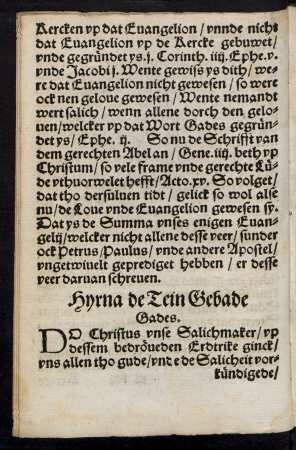 Kercken vp dat Euangelion/vnnde nicht
dat Euangelion vp de Kercke gebuwet/
vnde gegründet ys.j. Corinth. iiij. Ephe.v.
vnde Jacobi j. Wente gewiss ys dith/we-
re dat Euangelion nicht gewesen/so were
ock nen geloue gewesen/Wente nemandt
wert salich/wenn allene dorch den gelo-
uen/welcker vp dat Wort Gades gegrün-
det ys/Ephe. ij. So nu de Schrifft van
dem gerechten Abel an/Gene.iiij. beth vp
Christum/so vele frame vnde gerechte Lü-
de vthuorwelet hefft/Acto.xv. So volget/
dat tho dersuluen tidt/gelick so wol alse
nu/de Loue vnde Euangelion gewesen sy.
Dat ys de Summa vnses enigen Euan-
gelij/welcker nicht allene desse veer/sunder
ock Petrus/Paulus/vnde andere Apostel/
vngetwiuelt geprediget hebben/er desse
veer daruan schreuen.
Hyrna de Tein Gebade
Gades.
DO Christus vnse Salichmaker/vp
dessem bedröueden Erdtrike ginck/
vns allen tho gude/vnde de Salicheit vor-
kündigede/